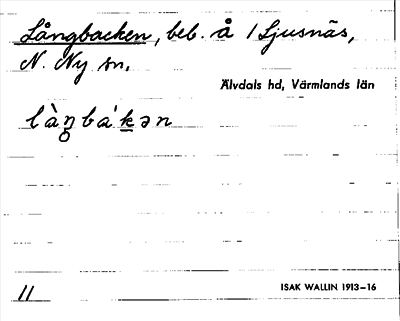 Långbacken, beb. å 1 Ljusnäs,
N. Ny sn.
Älvdals hd, Värmlands län
làŋbákən
11
ISAK WALLIN 1913–16